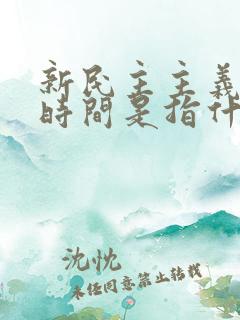 新民主主義
時間是指什
沈忱
未任同意禁止转载